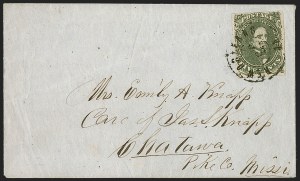 POSTAGE
Mrs. Emily A Knapp
Care of Jas. Knapp
Chatawa
Pike Co. Missi.